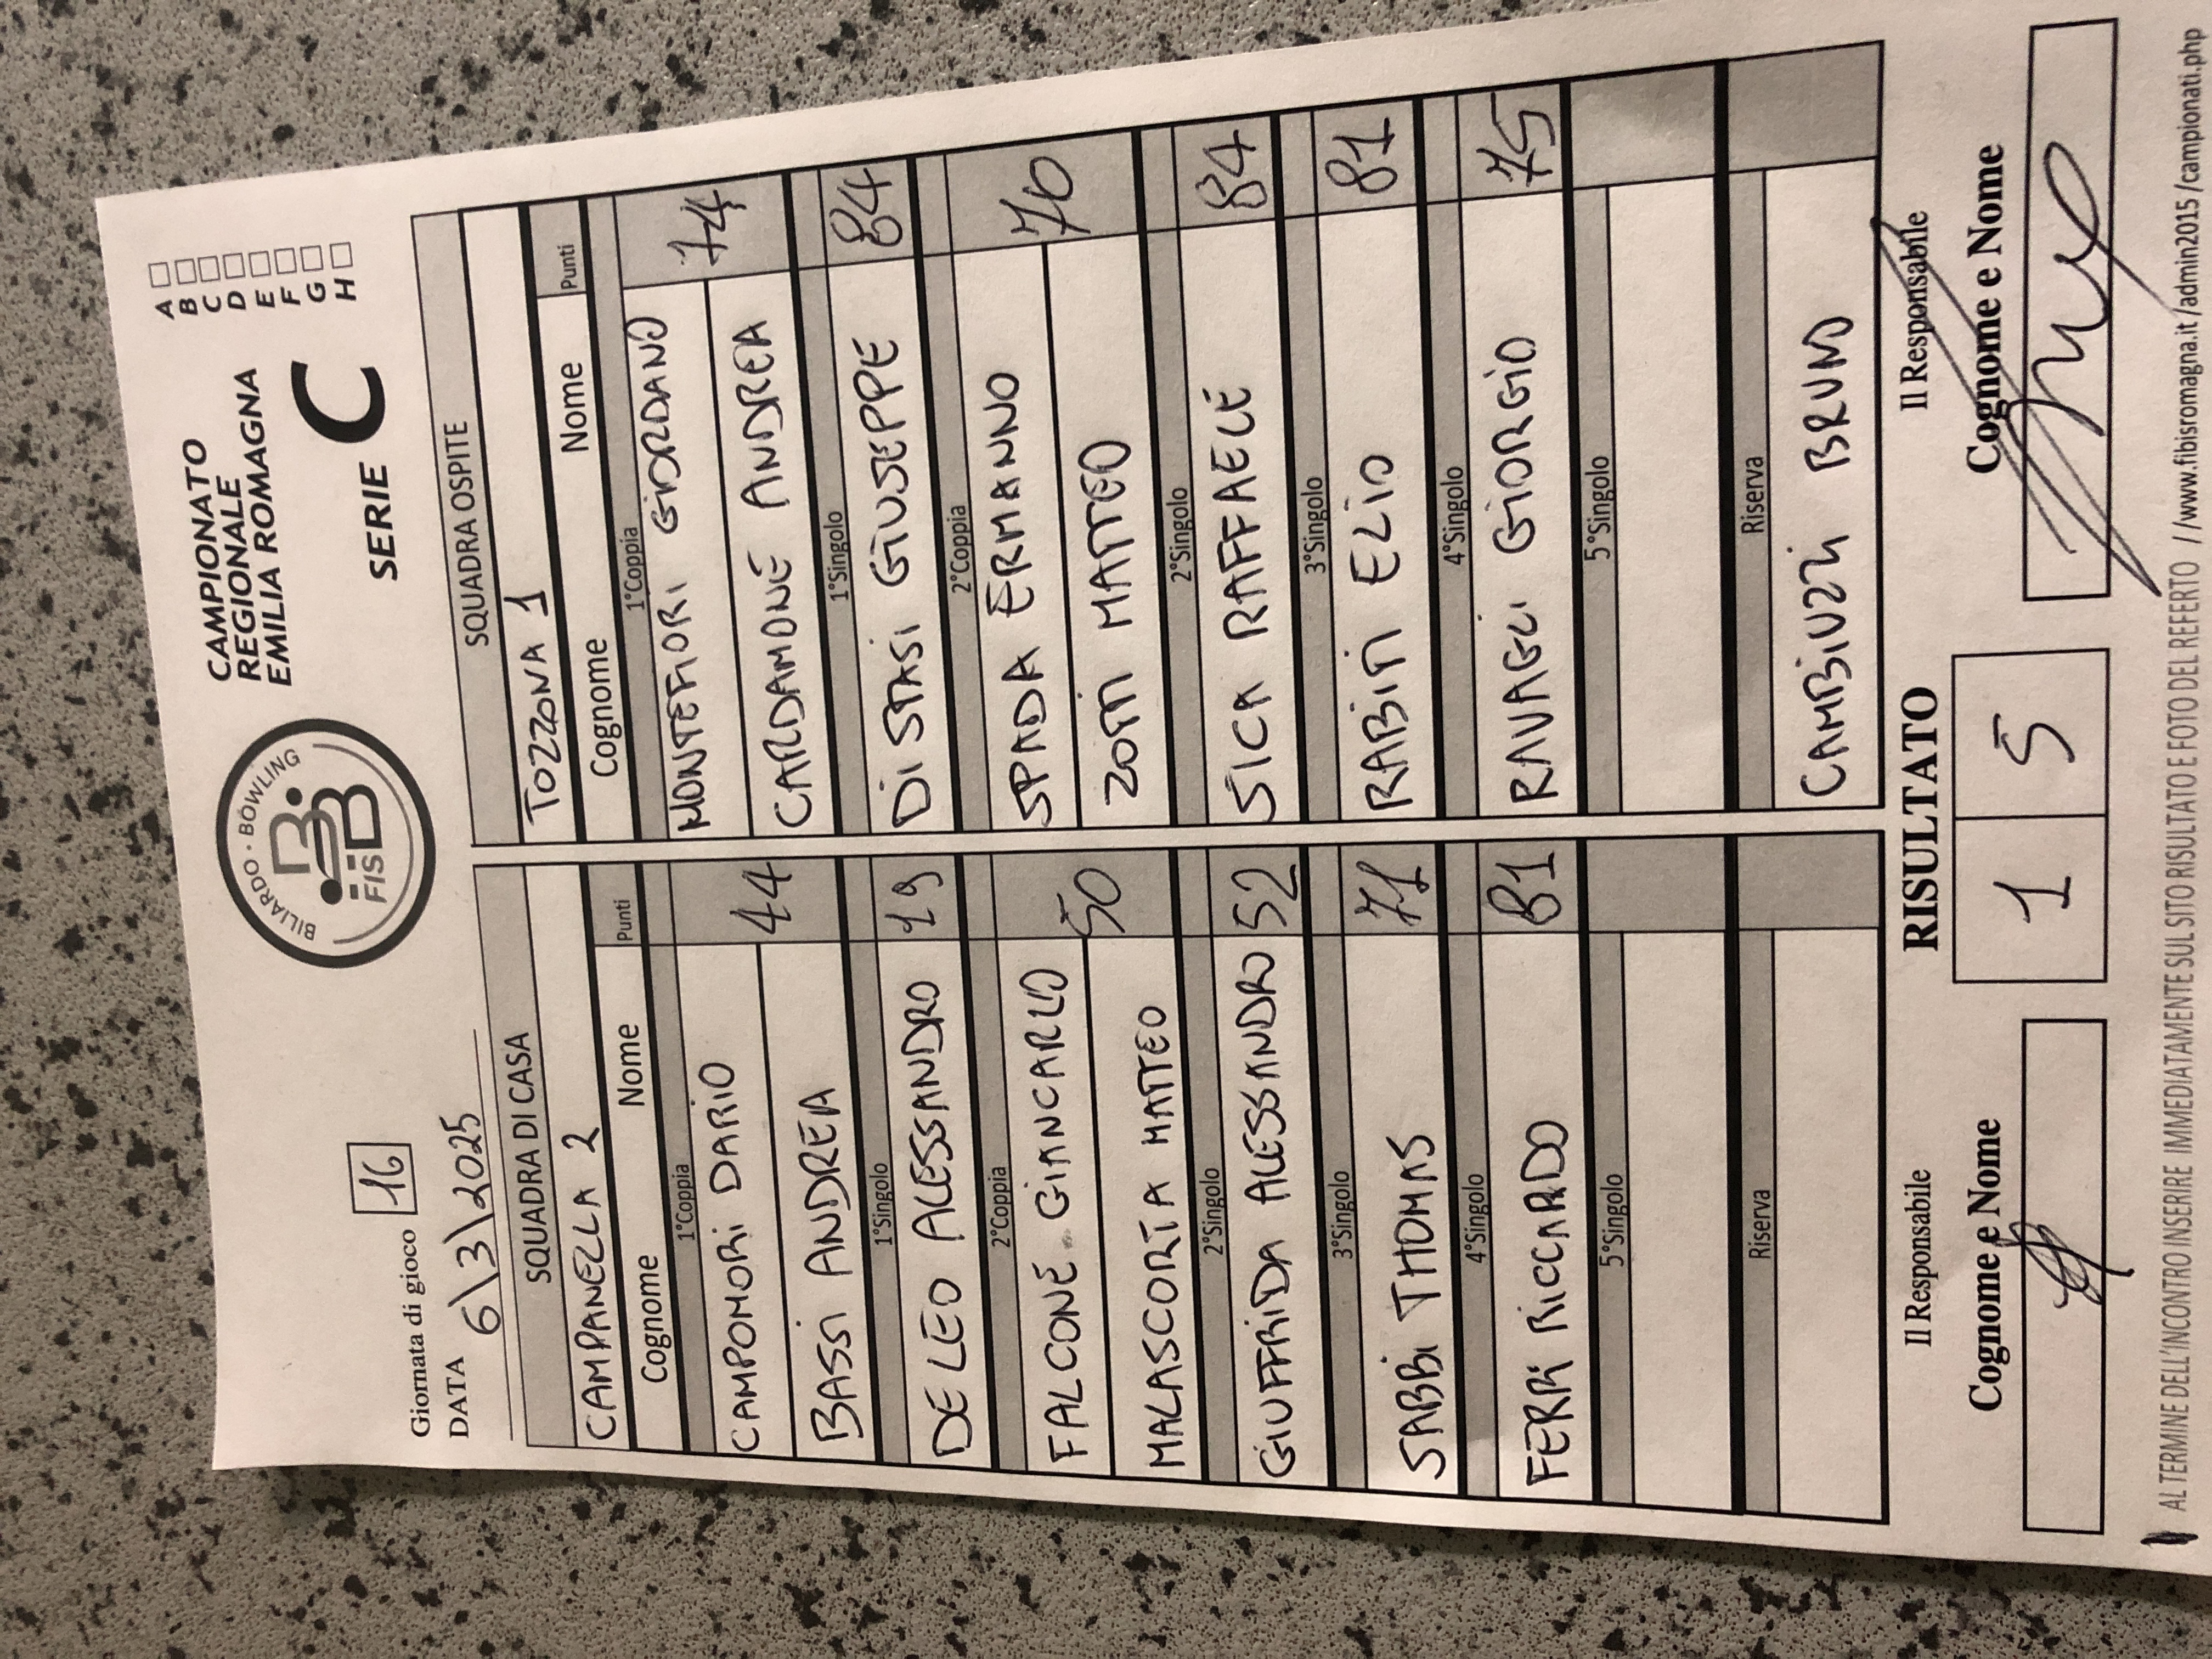 Giornata di gioco 16
DATA 6\3\2025
BILIARDO · BOWLING
FISBB
CAMPIONATO
REGIONALE
EMILIA ROMAGNA
SERIE C
A
B
C
D
E
F
G
H
SQUADRA DI CASA
CAMPANELLA 2
Cognome Nome Punti
1°Coppia
CAMPOMORI DARIO 44
BASSI ANDREA
1°Singolo
DE LEO ALESSANDRO 19
2°Coppia
FALCONE GIANCARLO 50
MALASCORTA MATTEO
2°Singolo
GIUFFRIDA ALESSANDRO 52
3°Singolo
SABBI THOMAS 71
4°Singolo
FERRI RICCARDO 81
5°Singolo
Riserva
SQUADRA OSPITE
TOZZONA 1
Cognome Nome Punti
1°Coppia
MONTEFIORI GIORDANO 74
CARDAMONE ANDREA
1°Singolo
DI STASI GIUSEPPE 84
2°Coppia
SPADA ERMANNO 70
ZOTTI MATTEO
2°Singolo
SICA RAFFAELE 84
3°Singolo
RABITI ELIO 81
4°Singolo
RAVAGLI GIORGIO 75
5°Singolo
Riserva
CAMBIUZZI BRUNO
Il Responsabile
Cognome e Nome
RISULTATO
1 5
Il Responsabile
Cognome e Nome
AL TERMINE DELL'INCONTRO INSERIRE IMMEDIATAMENTE SUL SITO RISULTATO E FOTO DEL REFERTO //www.fibisromagna.it /admin2015 /campionati.php